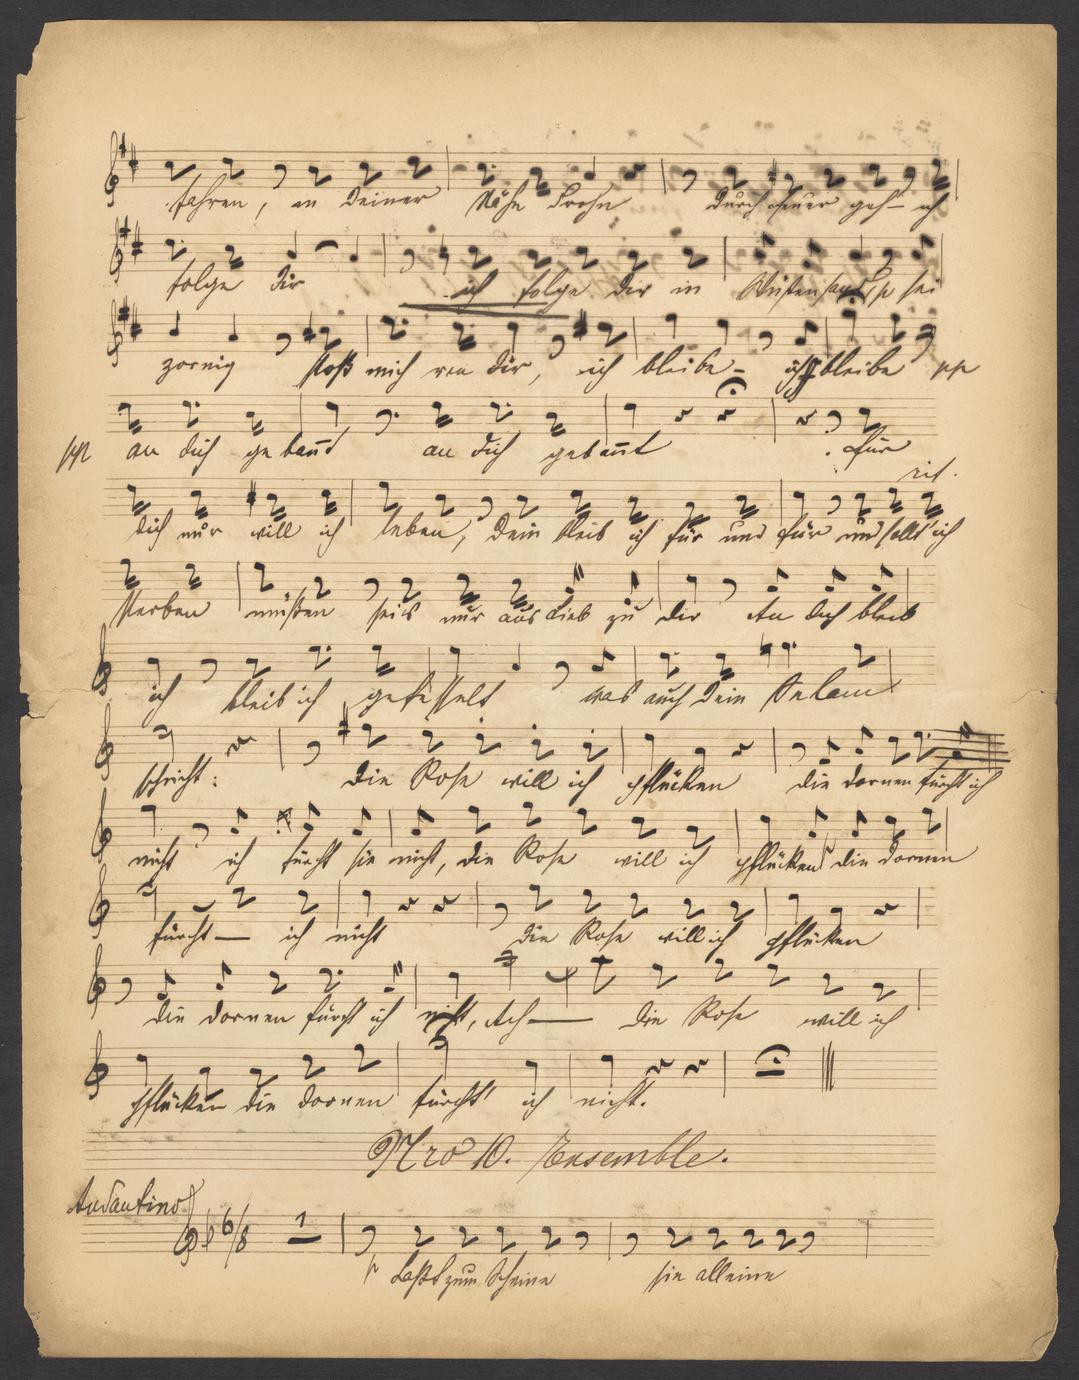 fahren, in deiner Nähe drohn durch Feuer geh- ich
folge dir ich folge dir in p sei
zornig stoß mich von dir, ich bleibe - ich bleibe pp
pp an dich gebaut an dich gebaut. für
rit.
dich nur will ich leben, dein bleib ich für und für und sollt' ich
sterben müßen sei's nur aus Lieb zu dir An dich bleib
ich bleib ich gefesselt was auch dein
spricht: die Rose will ich pflücken die dornen fürcht ich
nicht ich fürcht sie nicht, die Rose will ich pflücken die dornen
fürcht— ich nicht die Rose will ich pflücken
die dornen fürcht ich nicht, Ach— die Rose will ich
pflücken die dornen fürcht' ich nicht.
Nro 10. Ensemble.
Andantino
6/8 1
p Laßt zum Scheine sie alleine